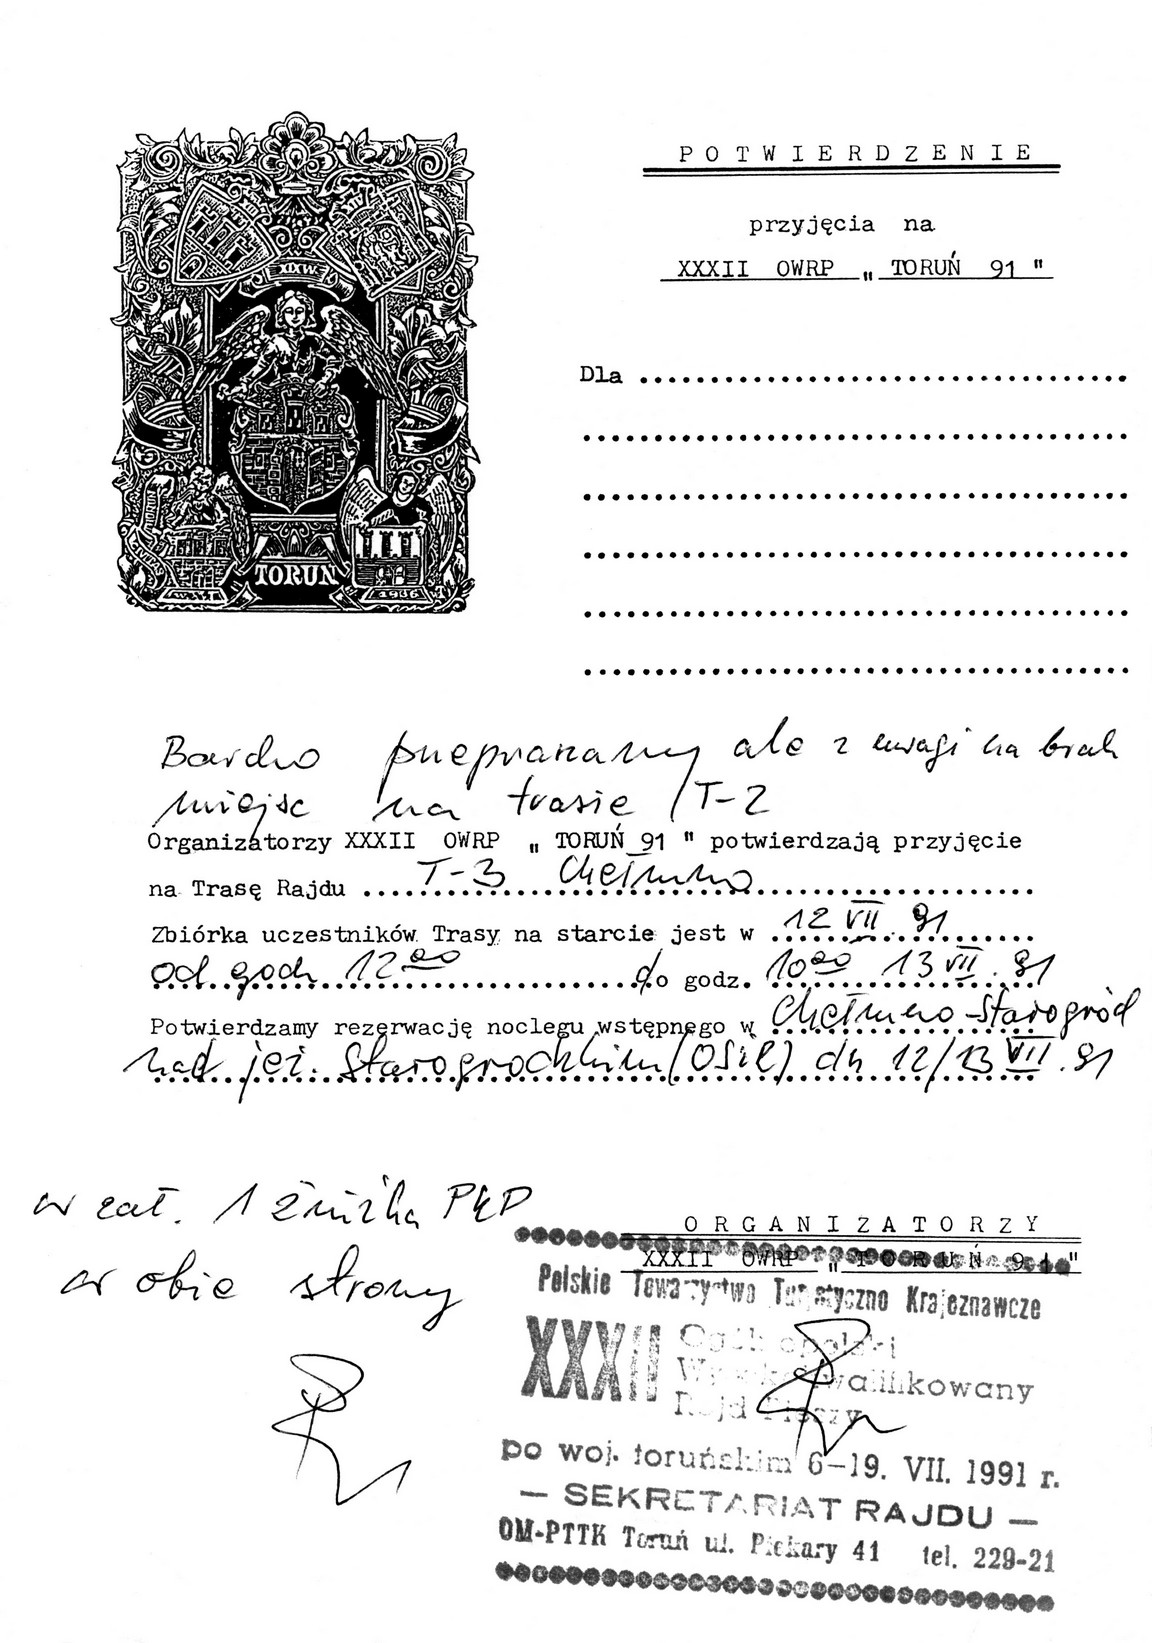 TORUŃ
1936
POTWIERDZENIE
przyjęcia na
XXXII OWRP „ TORUŃ 91 "
Dla
Bardzo przepraszamy ale z uwagi na brak
miejsc na trasie T-2
Organizatorzy XXXII OWRP „ TORUŃ 91 " potwierdzają przyjęcie
na Trasę Rajdu T-3 Chełmno
Zbiórka uczestników Trasy na starcie jest w 12 VII. 91
od godz 12 00 do godz. 10 00 13 VII. 91
Potwierdzamy rezerwację noclegu wstępnego w Chełmno-Starogród
nad jez. Starogrodzkim (OSiR) dn 12/13 VII. 91
w zał. 1 zniżka PKP
w obie strony
ORGANIZATORZY
XXXII OWRP „ TORUŃ 91 "
Polskie Towarzystwo Turystyczno Krajoznawcze
XXXII Ogólnopolski
Wysokokwalifikowany
Rajd Pieszy
po woj. toruńskim 6-19. VII. 1991 r.
— SEKRETARIAT RAJDU —
OM-PTTK Toruń ul. Piekary 41 tel. 229-21